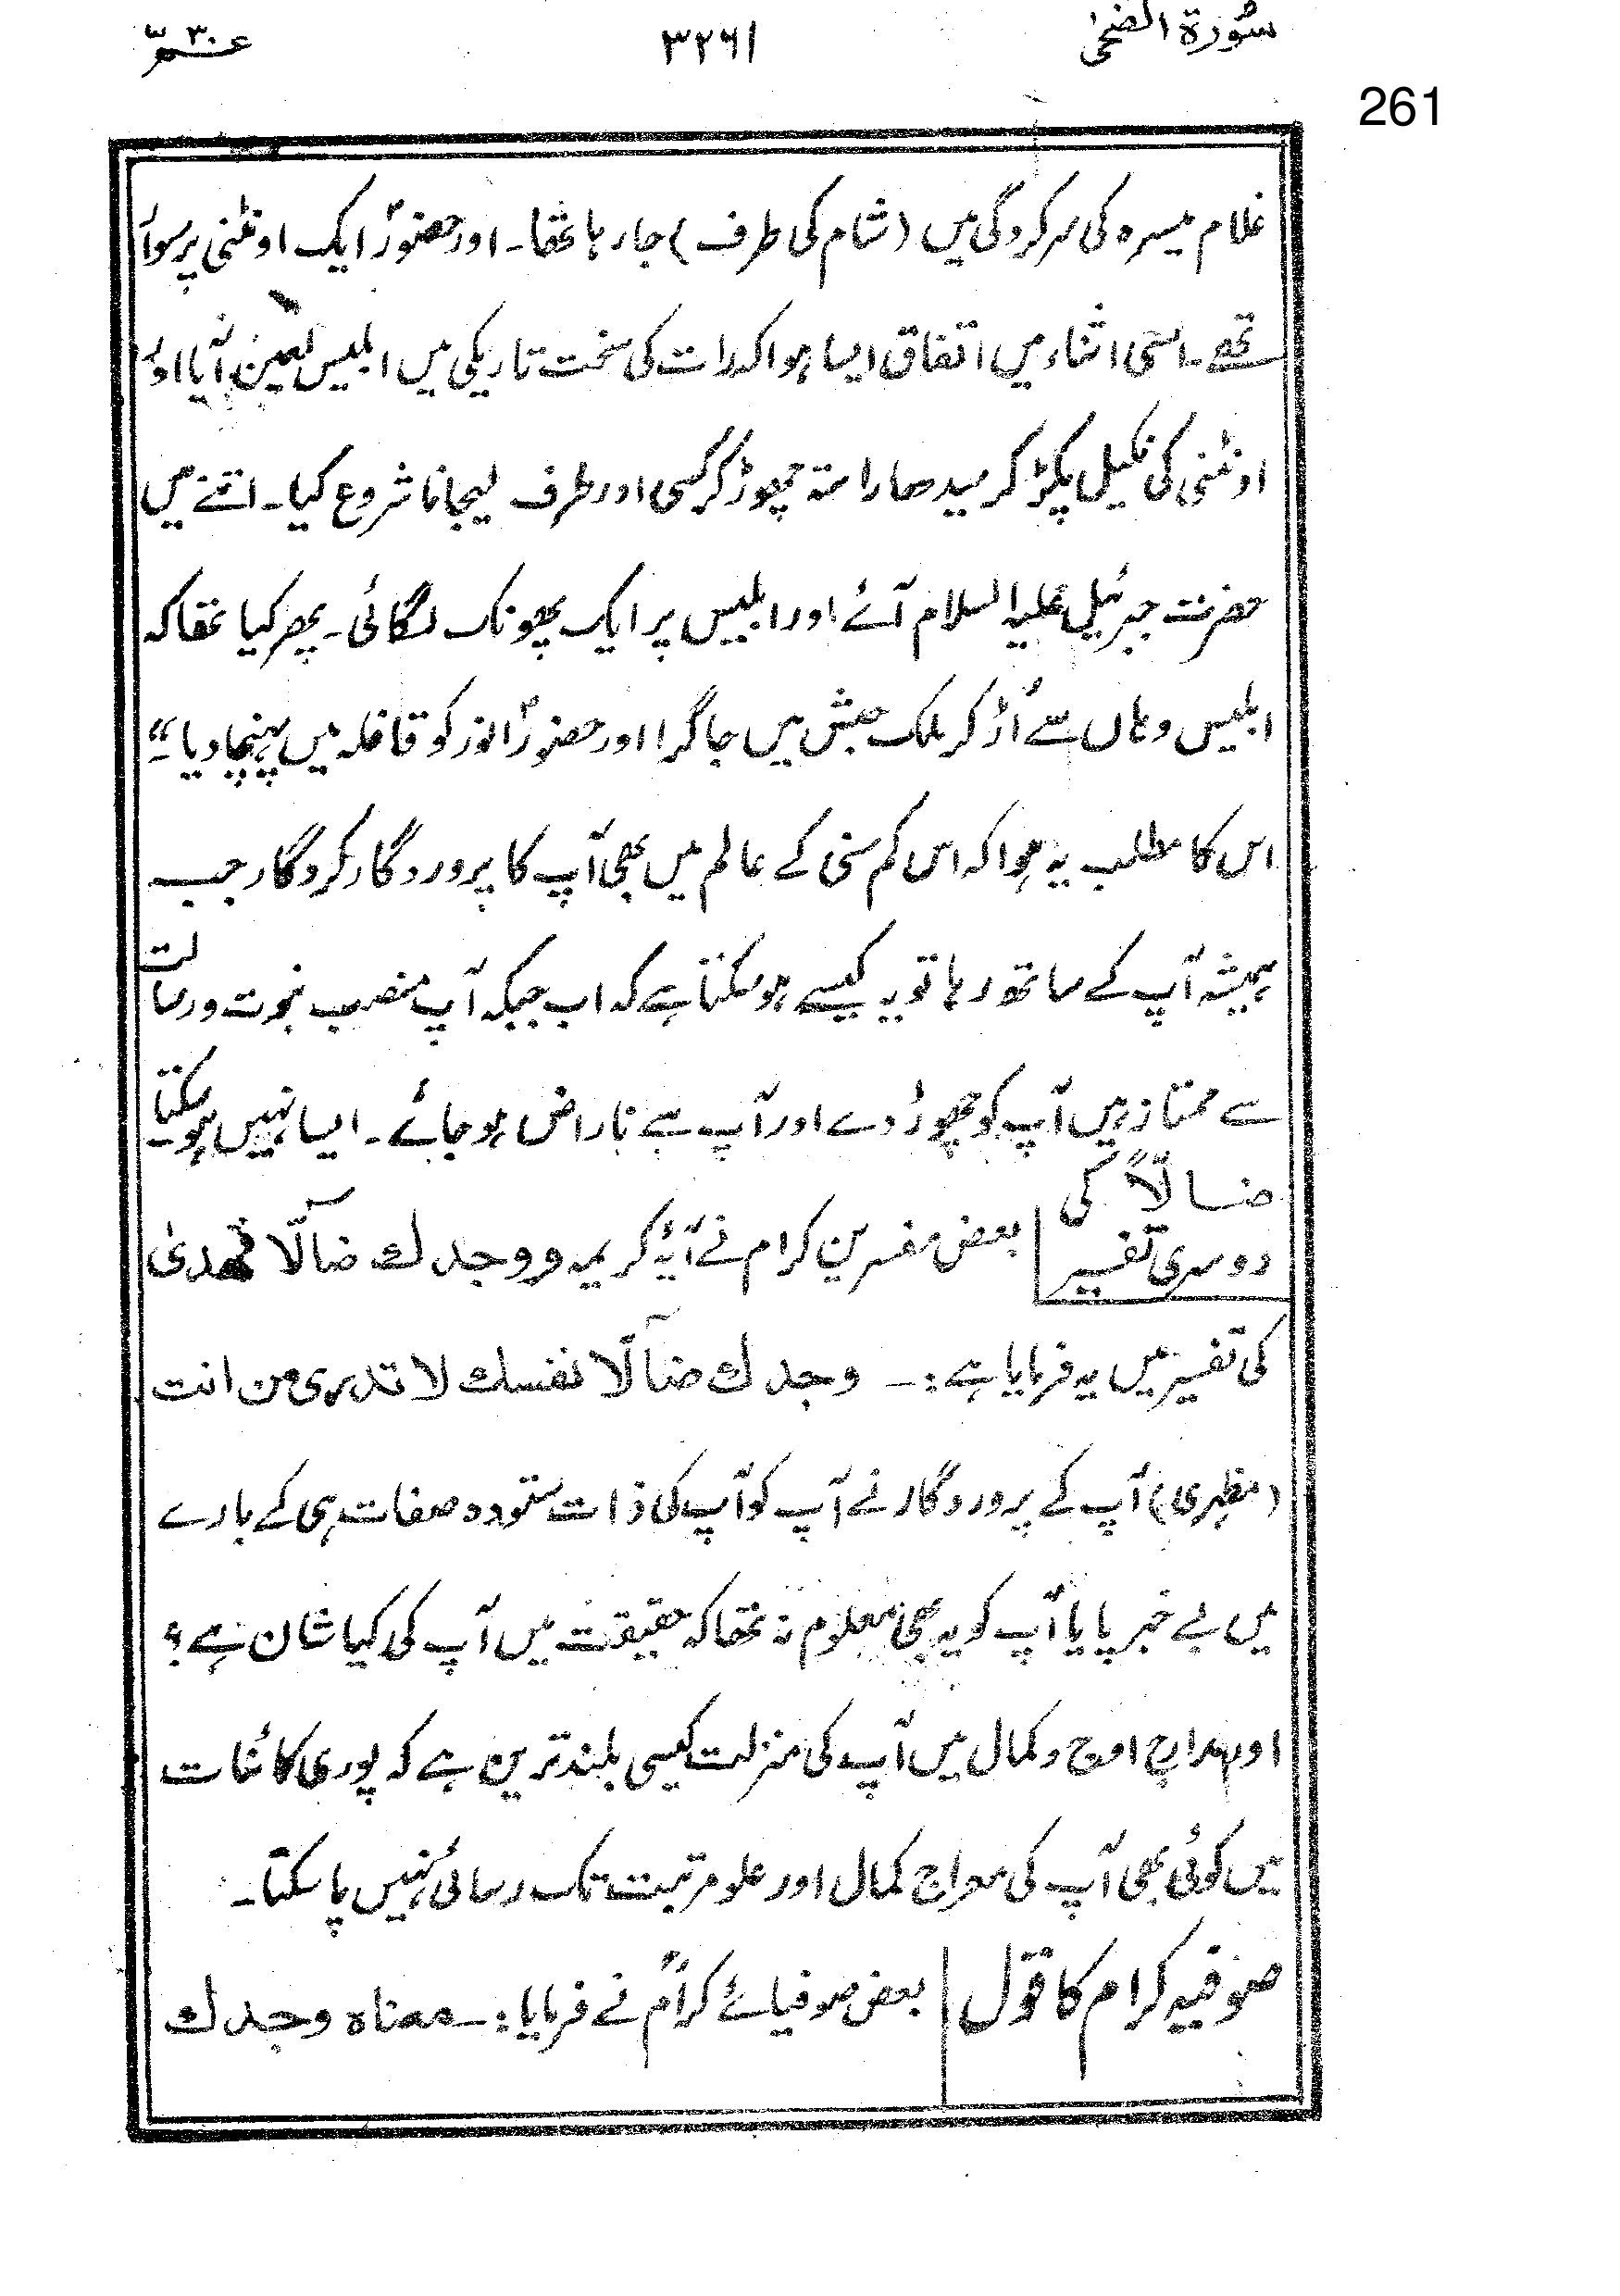 سُورة الضحیٰ ۳۲۶۱ عـــمّ ۳۰
261
غلام میسرہ کی سرکردگی میں (شام کی طرف) جا رہا تھا۔ اور حضورؐ ایک اونٹنی پر سوار
تھے۔ اسی اثناء میں اتفاق ایسا ہوا کہ رات کی سخت تاریکی میں ابلیس لعین آیا اور
اونٹنی کی نکیل پکڑ کر سیدھا راستہ چھوڑ کر کسی اور طرف لیجانا شروع کیا۔ اتنے میں
حضرت جبرئیل علیہ السلام آئے اور ابلیس پر ایک پھونک لگائی۔ پھر کیا تھا کہ
ابلیس وہاں سے اُڑ کر ملک حبش میں جا گرا اور حضورؐ انور کو قافلہ میں پہنچا دیا۔"
اس کا مطلب یہ ہوا کہ اس کم سنی کے عالم میں بھی آپ کا پروردگار کردگار جب
ہمیشہ آپ کے ساتھ رہا تو یہ کیسے ہو سکتا ہے کہ اب جبکہ آپ منصب نبوت و رسالت
سے ممتاز ہیں آپ کو چھوڑ دے اور آپ سے ناراض ہو جائے۔ ایسا نہیں ہو سکتا۔
ضالّاً کی
دوسری تفسیر
بعض مفسرین کرام نے آیۂ کریمہ ووجدك ضآلّا فهدیٰ
کی تفسیر میں یہ فرمایا ہے:۔ وجدك ضآلّا نفسك لا تدری من انت
(مظہری) آپ کے پروردگار نے آپ کو آپ کی ذات ستودہ صفات ہی کے بارے
میں بے خبر پایا آپ کو یہ بھی معلوم نہ تھا کہ حقیقت میں آپ کی کیا شان ہے؟
اور مدارج اوج و کمال میں آپ کی منزلت کیسی بلند ترین ہے کہ پوری کائنات
میں کوئی بھی آپ کی معراج کمال اور علو مرتبت تک رسائی نہیں پا سکتا۔
صوفیہ کرام کا قول بعض صوفیائے کرامؒ نے فرمایا:۔ معناہ وجدك